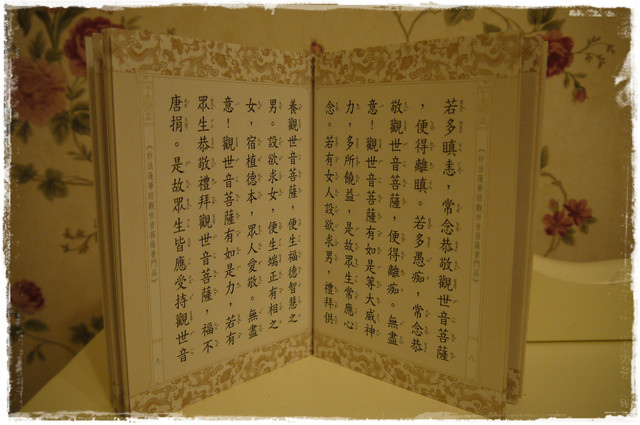 《妙法蓮華經觀世音菩薩普門品》
若多瞋恚，常念恭敬觀世音菩薩
，便得離瞋。若多愚痴，常念恭
敬觀世音菩薩，便得離痴。無盡
意！觀世音菩薩有如是等大威神
力，多所饒益，是故眾生常應心
念。若有女人設欲求男，禮拜供
養觀世音菩薩，便生福德智慧之
男。設欲求女，便生端正有相之
女，宿植德本，眾人愛敬。無盡
意！觀世音菩薩有如是力，若有
眾生恭敬禮拜觀世音菩薩，福不
唐捐。是故眾生皆應受持觀世音
《妙法蓮華經觀世音菩薩普門品》
九